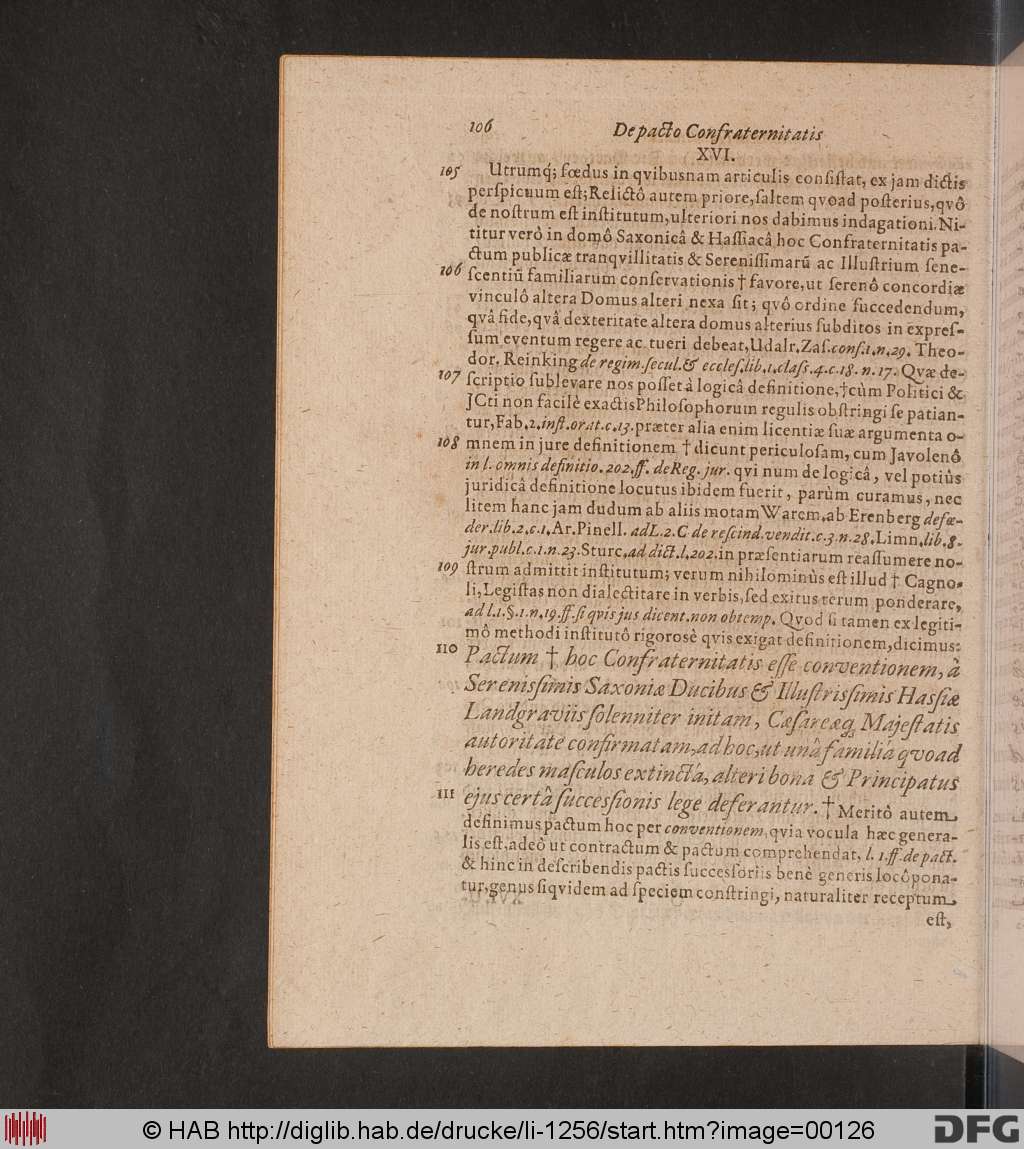 106 De pacto Confraternitatis
XVI.
105 Utrumq́; fœdus in qvibusnam articulis consistat, ex jam dictis
perspicuum est; Relictô autem priore, saltem qvoad posterius, qvô
de nostrum est institutum, ulteriori nos dabimus indagationi. Ni-
titur verò in domô Saxonicâ & Hassiacâ hoc Confraternitatis pa-
ctum publicæ tranqvillitatis & Serenissimarū ac Illustrium sene-
106 scentiū familiarum conservationis † favore, ut serenô concordiæ
vinculô altera Domus alteri nexa sit; qvô ordine succedendum,
qvâ fide, qvâ dexteritate altera domus alterius subditos in expres-
sum eventum regere ac tueri debeat, Udalr. Zas. cons. 1. n. 29. Theo-
dor. Reinking de regim. secul. & eccles. lib. 1. class. 4. c. 18. n. 17. Qvæ de-
107 scriptio sublevare nos posset à logicâ definitione, † cùm Politici &
JCti non facilè exactis Philosophorum regulis obstringi se patian-
tur, Fab. 2. inst. orat. c. 13. præter alia enim licentiæ suæ argumenta o-
108 mnem in jure definitionem † dicunt periculosam, cum Javolenô
in l. omnis definitio. 202. ff. de Reg. jur. qvi num de logicâ, vel potiùs
juridicâ definitione locutus ibidem fuerit, parùm curamus, nec
litem hanc jam dudum ab aliis motam Warem. ab Erenberg de fœ-
der. lib. 2. c. 1. Ar. Pinell. ad L. 2. C de rescind. vendit. c. 3. n. 28. Limn. lib. 8.
jur. publ. c. 1. n. 23. Sturc. ad dict. l. 202. in præsentiarum reassumere no-
109 strum admittit institutum; verum nihilominùs est illud † Cagno-
li, Legistas non dialectitare in verbis, sed exitus rerum ponderare,
ad l. 1. §. 1. n. 19. ff. si qvis jus dicent. non obtemp. Qvod si tamen ex legiti-
mô methodi institutô rigorosè qvis exigat definitionem, dicimus:
110 Pactum † hoc Confraternitatis esse conventionem, à
Serenissimis Saxoniæ Ducibus & Illustrissimis Hassiæ
Landgraviis solenniter initam, Cæsareæq; Majestatis
autoritate confirmatam, ad hoc, ut unâ familiâ qvoad
heredes masculos extinctâ, alteri bona & Principatus
111 ejus certâ successionis lege deferantur. † Meritô autem
definimus pactum hoc per conventionem, qvia vocula hæc genera-
lis est, adeò ut contractum & pactum comprehendat, l. 1. ff. de pact.
& hinc in describendis pactis successoriis benè generis locô pona-
tur, genus siqvidem ad speciem constringi, naturaliter receptum
est,
© HAB http://diglib.hab.de/drucke/li-1256/start.htm?image=00126
DFG